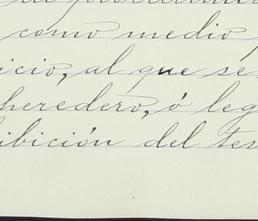 como medio
icio, al que se
heredero, ó leg
ibición del tes